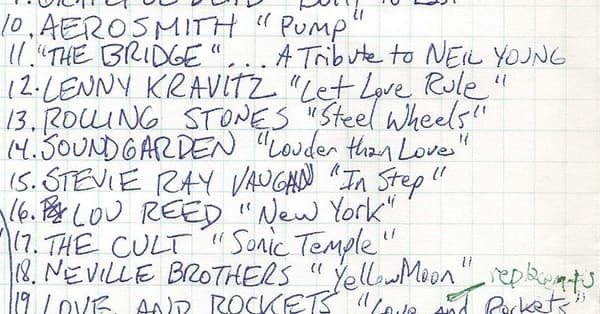 10. AEROSMITH "PUMP"
11. "THE BRIDGE"... A Tribute to NEIL YOUNG
12. LENNY KRAVITZ "Let Love Rule"
13. ROLLING STONES "Steel Wheels"
14. SOUNDGARDEN "Louder than Love"
15. STEVIE RAY VAUGHAN "In Step"
16. LOU REED "New York"
17. THE CULT "Sonic Temple"
18. NEVILLE BROTHERS "Yellow Moon" replacements
19 LOVE AND ROCKETS "Love and Rockets"